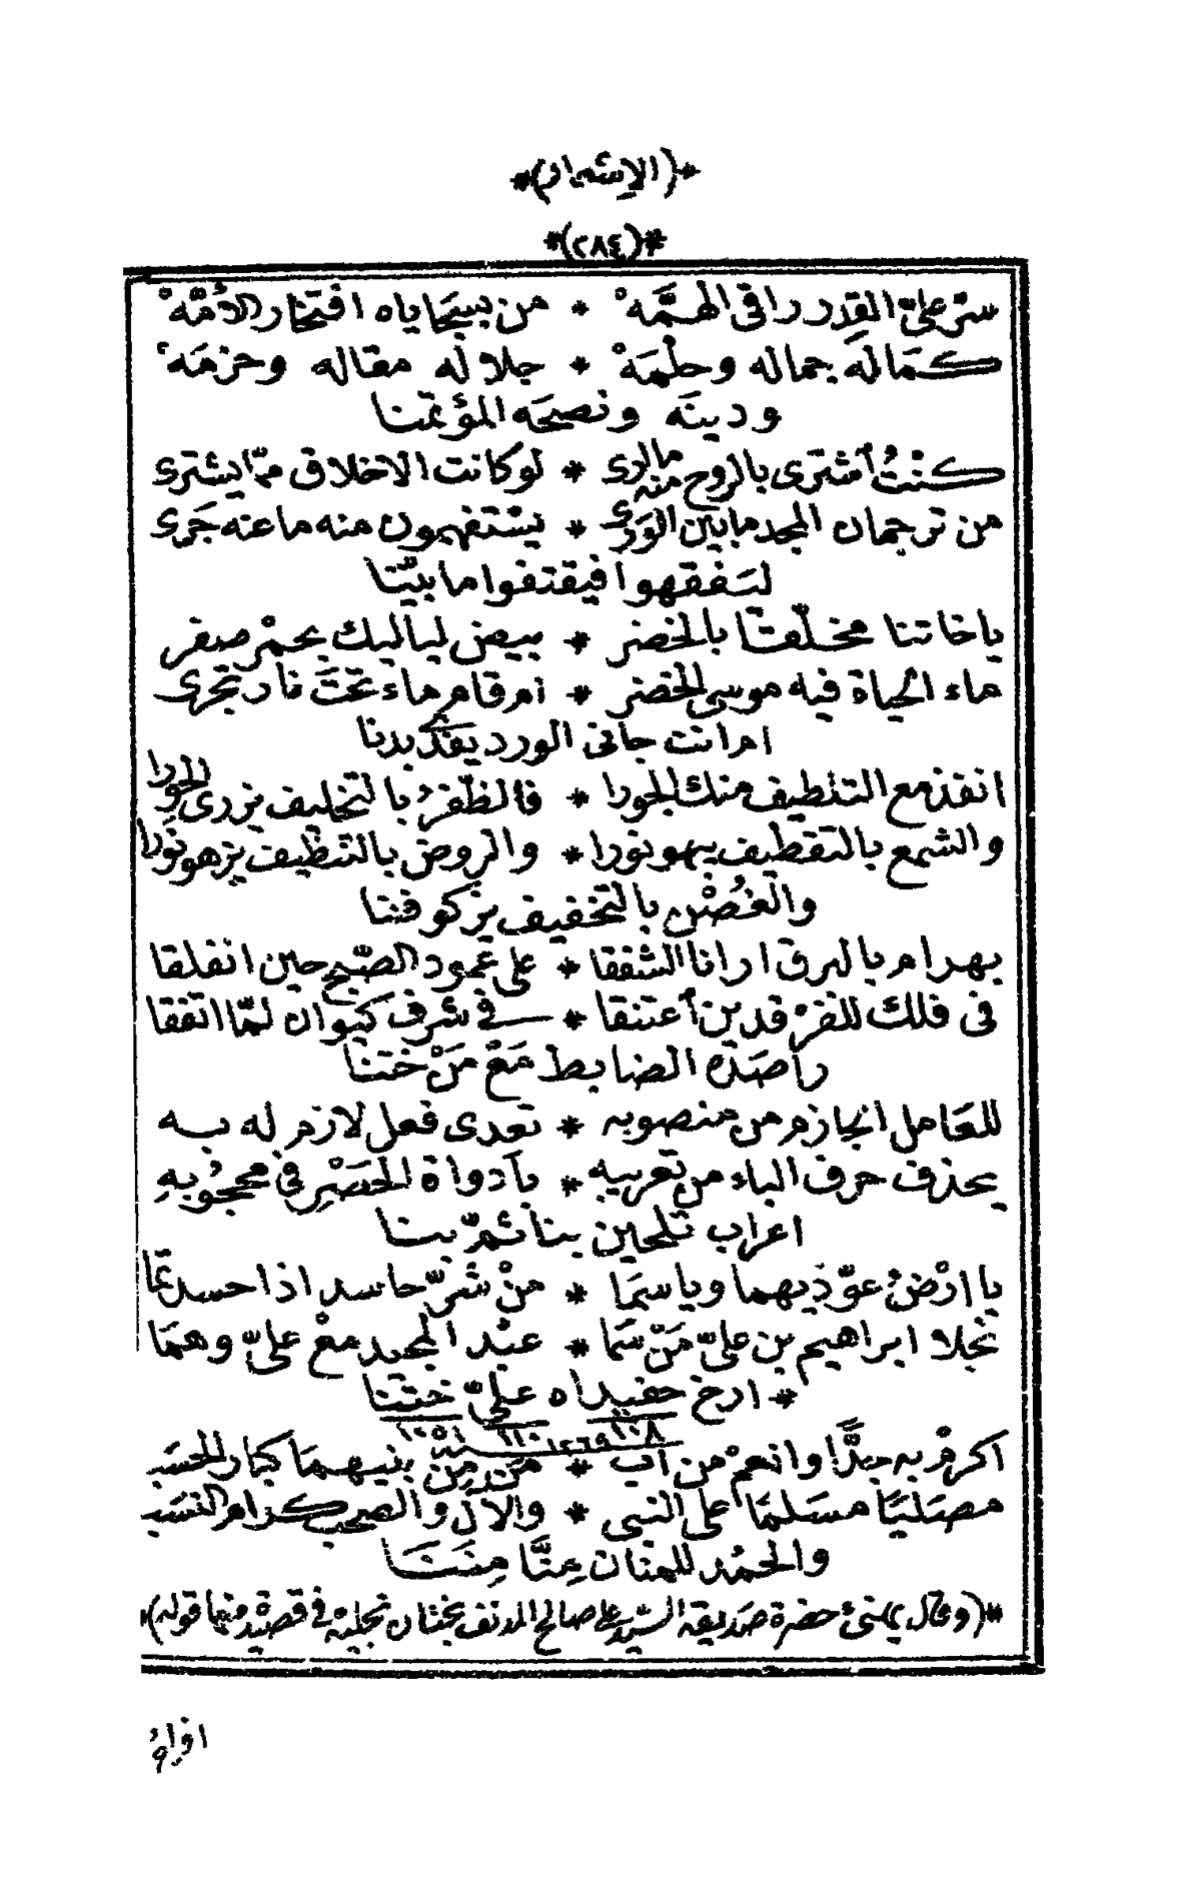 *(الاشعار)*
*(٢٨٤)*
سرّ عليّ القدر راقى الهمَّهْ * من بسجاياه افتخار الأمّهْ
كماله جماله وحلمَهْ * جلاله مقاله وحزمَهْ
ودينَه ونصحَه المؤتمنا
كنْتُ أشترى بالروح منه مالدى * لوكانت الاخلاق ممّا يشترى
من ترجمان المجد مابين الورى * يستفهمون منه ماعنه جَرى
ليفقهوا فيقتفوا مابيّنا
ياخاتنا مخلّفتا بالخضر * بيض لياليك بحمْر صفر
ماء الحياة فيه موسى الخضر * ام قام ماء تحتَ نار تجرى
ام انت جانى الورد يفديك بدنا
انفذ مع التلطيف منك الجورا * فالظفرُ بالتحليف يزرى الحورا
والشمع بالتقطيف ينمو نورا * والروض بالتنظيف يزهو نورا
والغُصْن بالتخفيف يزكو فننا
بهرام بالبرق ارانا الشفقا * على عمود الصّبح حين انفلقا
فى فلك للفرْقدين أعتنقا * فى شرف كيوان لمّا اتفقا
راصَدَه الضابط مَعْ مَنْ ختنا
للعَامل الجازم من منصوبه * تعدى فعل لازم له به
بحذف حرف الباء من تعريبه * بأدواة الحَصْر فى محجُوبهِ
اعراب تلحين بنا ثمّ بنا
يا ارْضُ عوّذيهما وياسمَا * منْ شرّ حاسد اذا حسد تما
نجلا ابراهيم بن علىّ مَنْ سَما * عبْد المجيد معْ علىّ وهمَا
* ارخ حفيداه علىّ ختنا
١٠٥١ ١١٠ ١٠٨
١٢٦٩ سنة
اكرمْ به جدًّا وانعمْ من أب * مَن مِنْ بنيهمَا كبار الحسَب
مصَليًا مسَلمًا على النبى * والآل والصحب كرام النسَب
والحمْد للمنان مِنَّا مِنَنَا
*(وقال يهنئ حضرة صديقه السيّد على صالح المدنف بختان نجليه فى قصيدة منها قوله)*
افراح